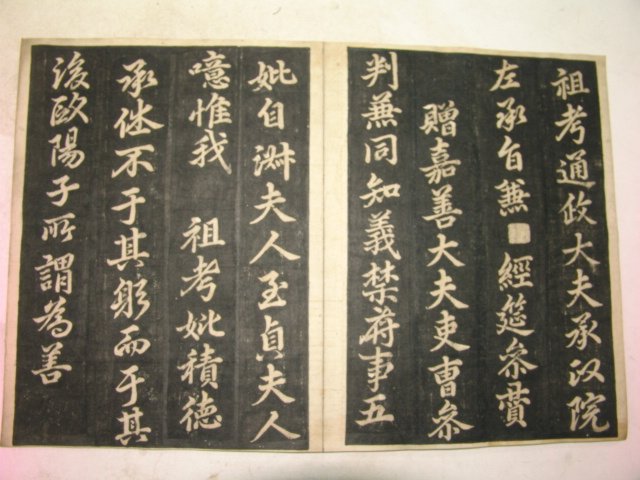 祖考通政大夫承政院
左承旨兼 經筵參贊
贈嘉善大夫吏曹參
判兼同知義禁府事五
妣自淑夫人至貞夫人
噫惟我 祖考妣積德
承休不于其躬而于其
後歐陽子所謂為善